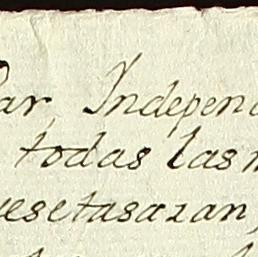 ar, Indepen
todas las
esetasazan,